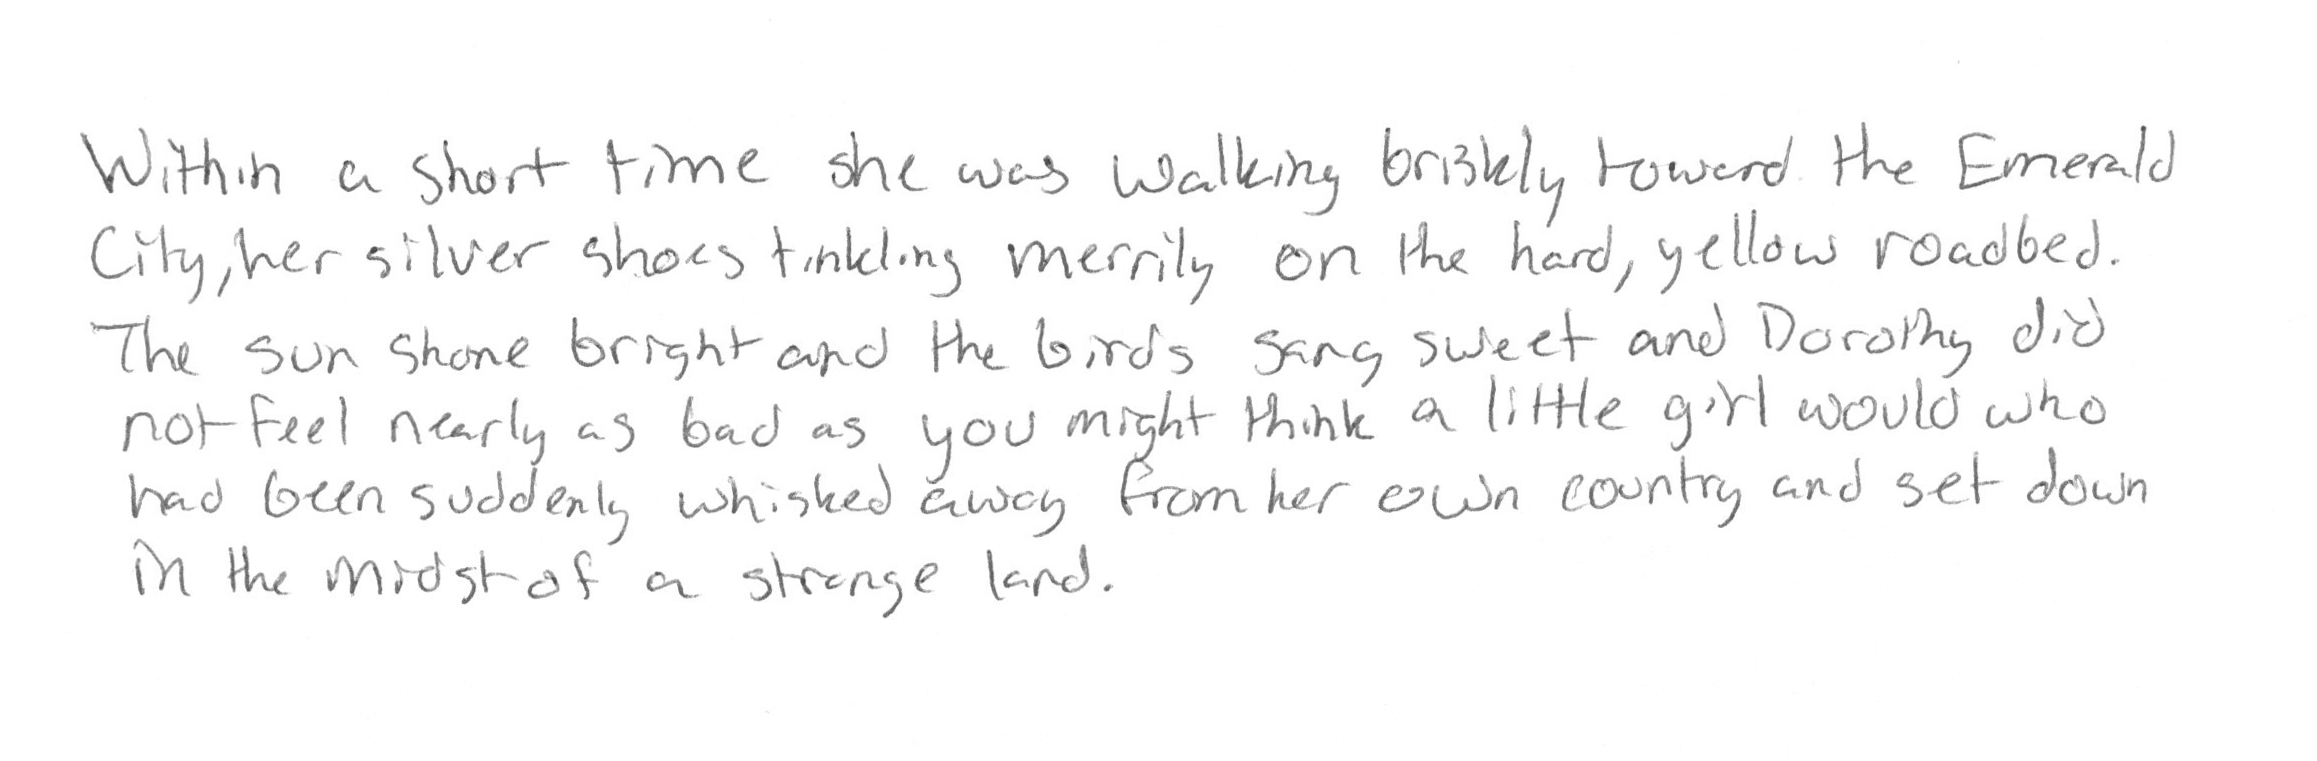 Within a short time she was walking briskly toward the Emerald
City, her silver shoes tinkling merrily on the hard, yellow roadbed.
The sun shone bright and the birds sang sweet and Dorothy did
not feel nearly as bad as you might think a little girl would who
had been suddenly whisked away from her own country and set down
in the midst of a strange land.